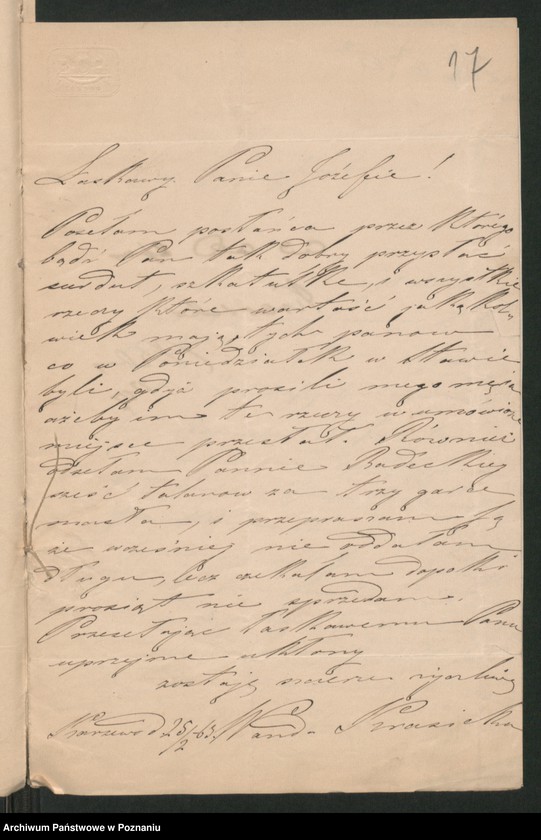 17
Łaskawy Panie Józefie!
Posełam posłańca przez którego
bądź Pan tak dobry przysłać
surdut, szkatułkę, i wszystkie
rzeczy które wartość jakąkol-
wiek mają tych panow
co w Poniedziałek w Sławie
byli, gdyż prosili mego męża
ażeby im te rzeczy w umówione
miejsce przesłał. Również
odsełam Pannie Radeckiej
sześć talarow za trzy garce
masła, i przepraszam Ją
że wcześniej nie oddałam
długu, lecz czekałam dopoki
prosiąt nie sprzedam.
Przesełając łaskawemu Panu
uprzejme ukłony
zostaję szczerze życzliwą
d 25/2 63. Wanda
Archiwum Państwowe w Poznaniu